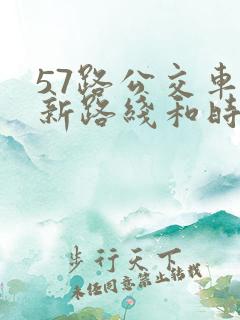 57路公交车
新路线和时
步行天下
未经同意禁止转载